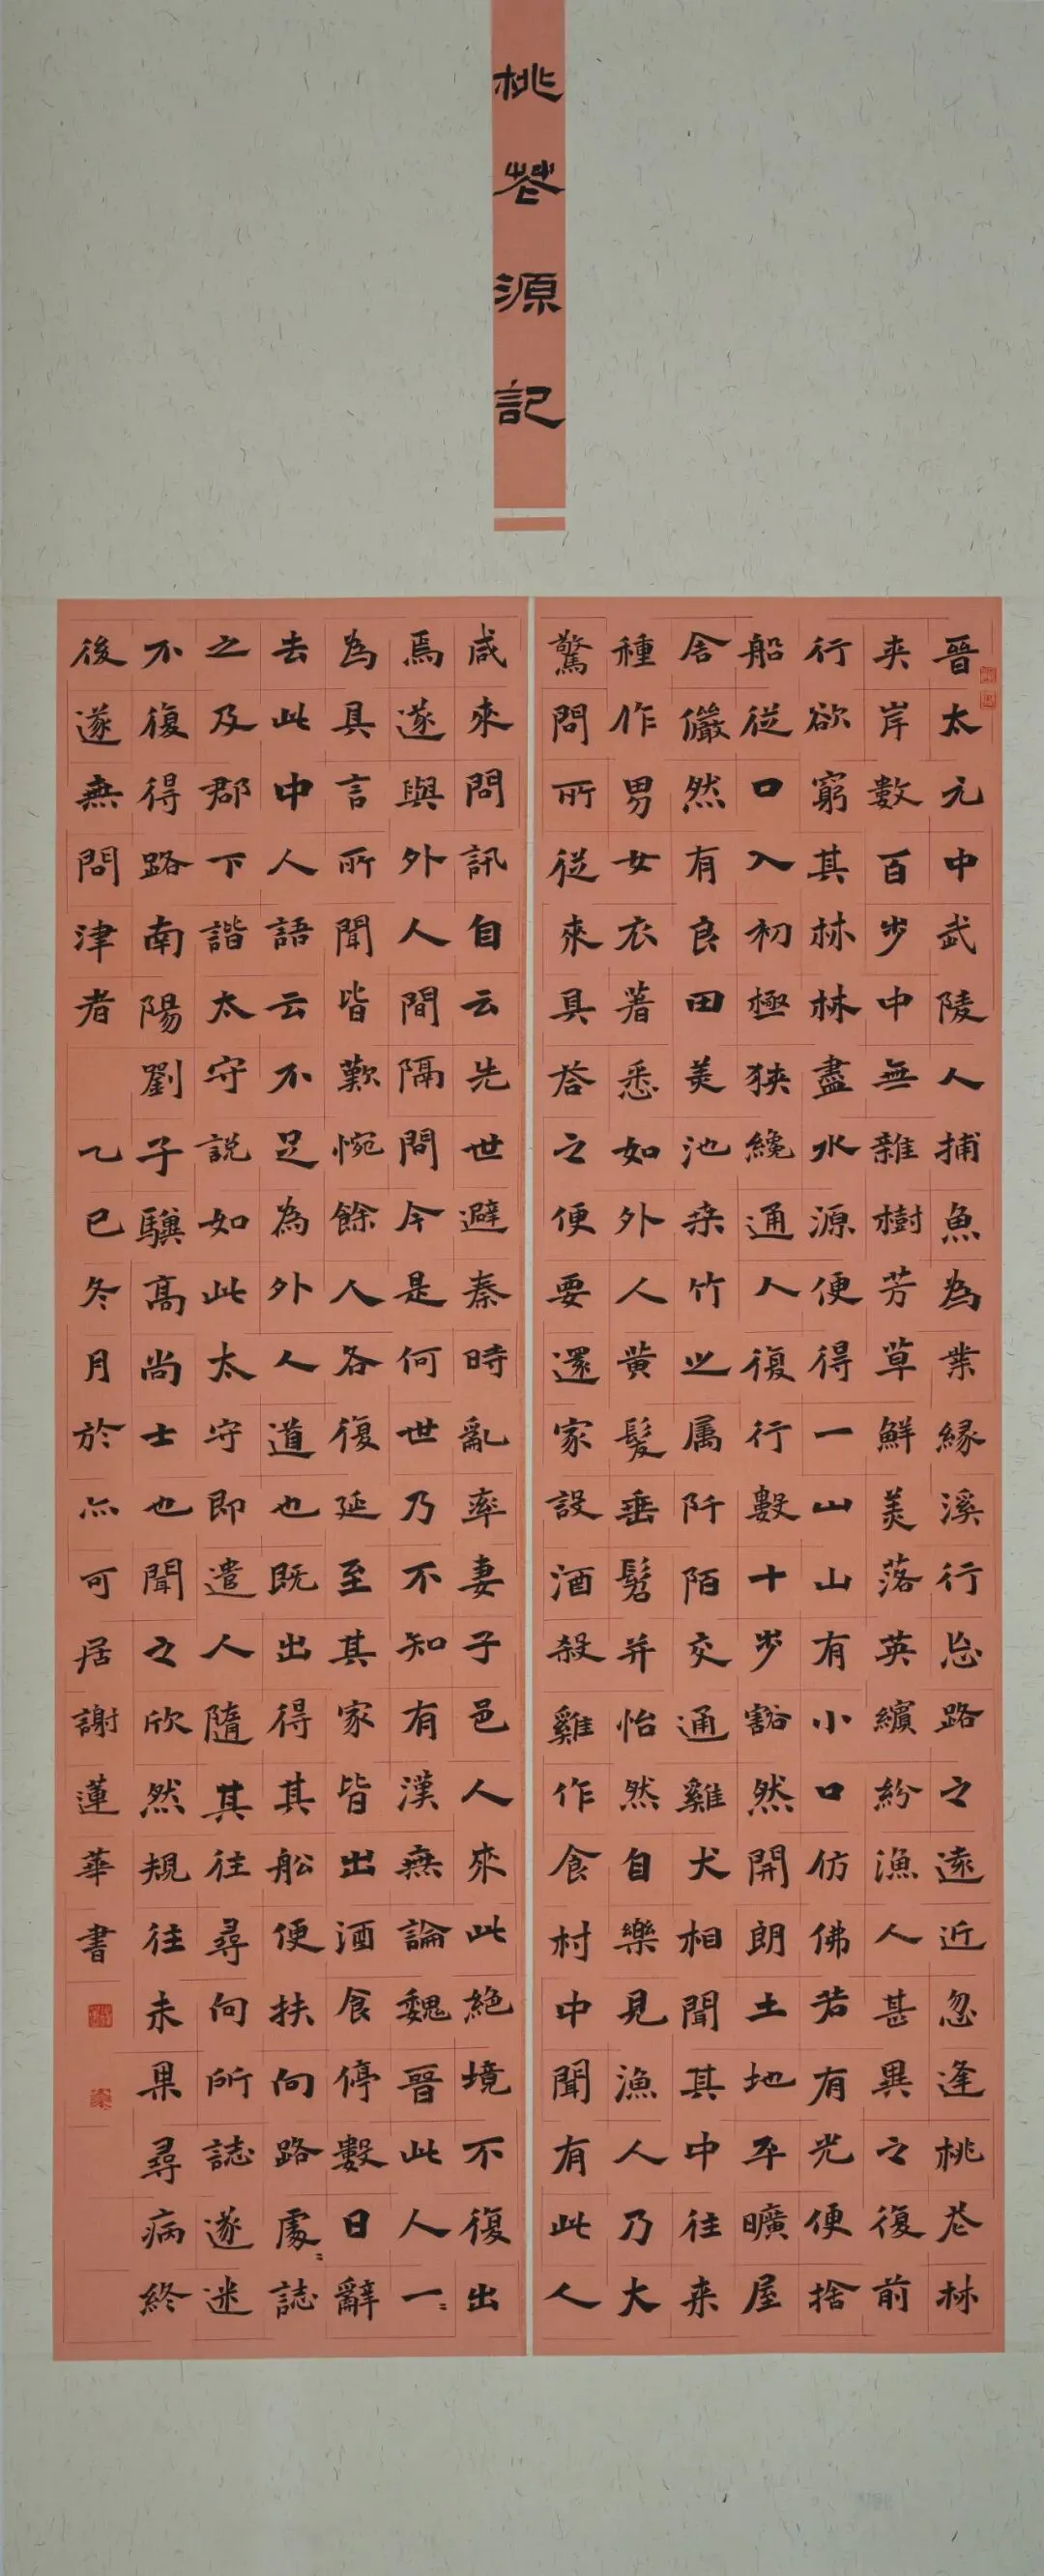 桃花源記
晉太元中武陵人捕魚為業緣溪行忘路之遠近忽逢桃花林
夾岸數百步中無雜樹芳草鮮美落英繽紛漁人甚異之復前
行欲窮其林林盡水源便得一山山有小口仿佛若有光便捨
船從口入初極狹纔通人復行數十步豁然開朗土地平曠屋
舍儼然有良田美池桑竹之属阡陌交通雞犬相聞其中往来
種作男女衣著悉如外人黄髮垂髫并怡然自樂見漁人乃大
驚問所從來具答之便要還家設酒殺雞作食村中聞有此人
咸來問訊自云先世避秦時亂率妻子邑人來此絶境不復出
焉遂與外人間隔問今是何世乃不知有漢無論魏晉此人一〻
為具言所聞皆歎惋餘人各復延至其家皆出酒食停數日辭
去此中人語云不足為外人道也既出得其船便扶向路處〻誌
之及郡下諧太守說如此太守即遣人隨其往尋向所誌遂迷
不復得路南陽劉子驥高尚士也聞之欣然規往未果尋病終
後遂無問津者 乙巳冬月於亦可居謝蓮華書